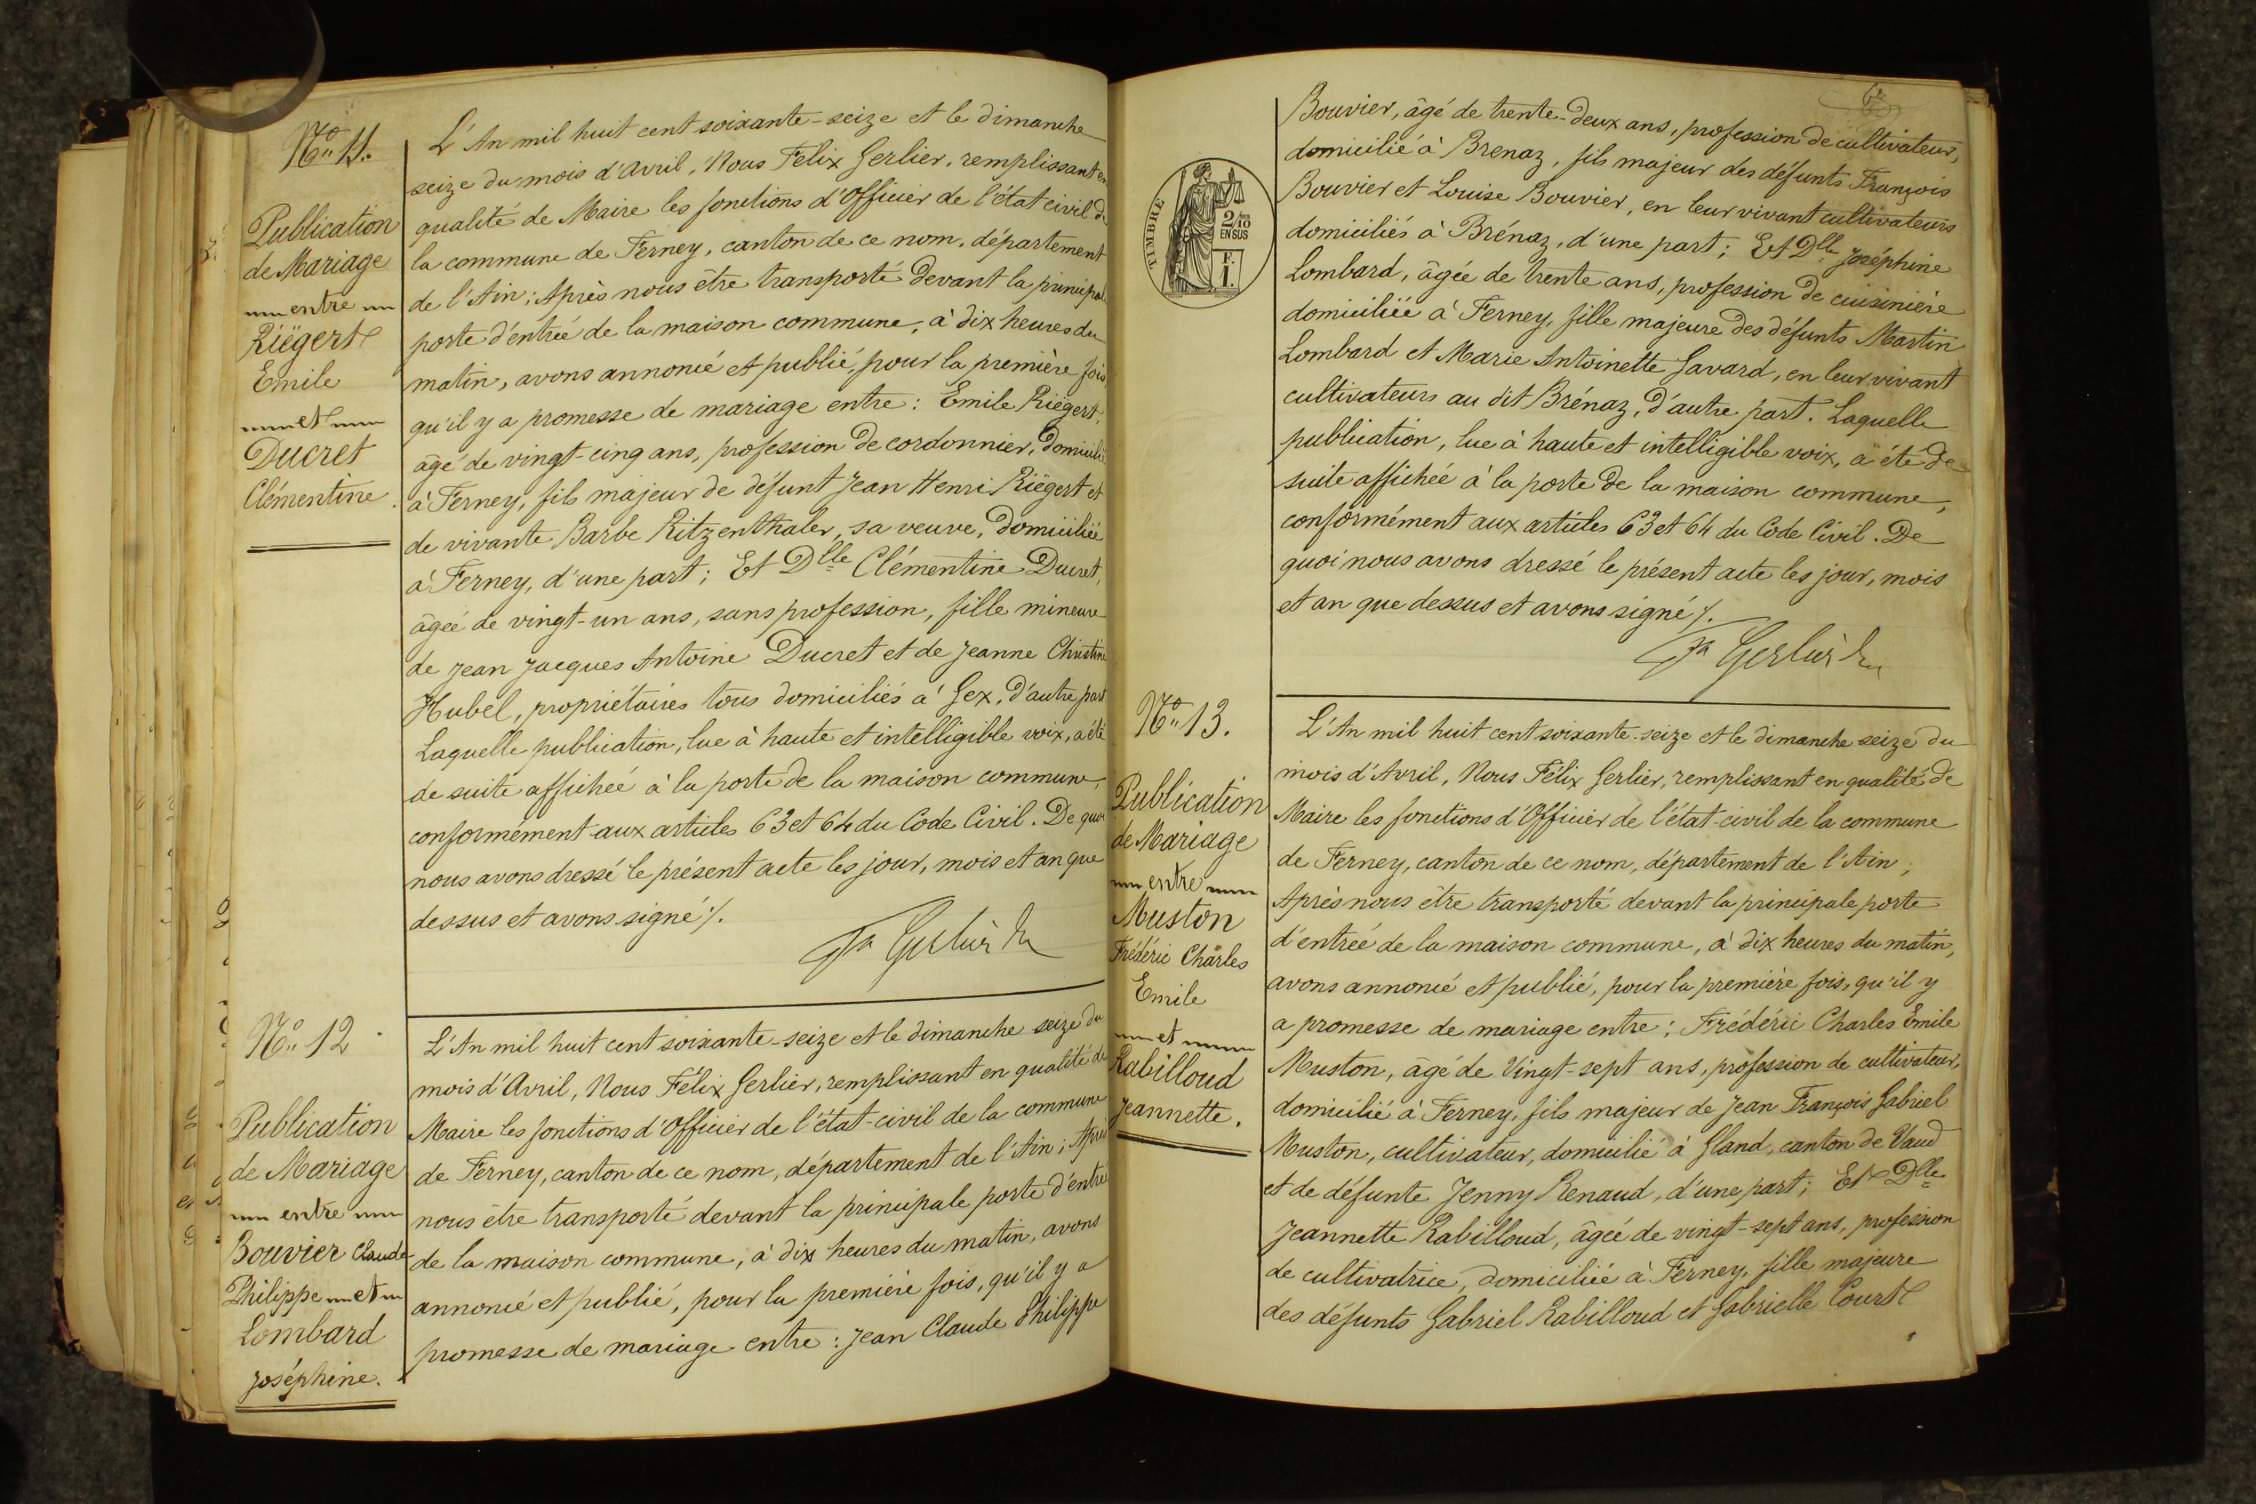 N° 11.
Publication
de Mariage
entre
Riëgert
Emile
et
Ducret
Clémentine
L'An mil huit cent soixante-seize et le dimanche
seize du mois d'Avril, Nous Félix Gerlier, remplissant en
qualité de Maire les fonctions d'Officier de l'état civil de
la commune de Ferney, canton de ce nom, département
de l'Ain; Après nous être transporté devant la principale
porte d'entrée de la maison commune, à dix heures du
matin, avons annoncé et publié, pour la première fois,
qu'il y a promesse de mariage entre: Emile Riëgert,
âgé de vingt-cinq ans, profession de cordonnier, domicilié
à Ferney, fils majeur de défunt Jean Henri Riëgert et
de vivante Barbe Ritzenthaler, sa veuve, domiciliée
à Ferney, d'une part; Et Dlle Clémentine Ducret,
âgée de vingt-un ans, sans profession, fille mineure
de Jean Jacques Antoine Ducret et de Jeanne Christine
Hubel, propriétaires tous domiciliés à Gex, d'autre part
Laquelle publication, lue à haute et intelligible voix, a été
de suite affichée à la porte de la maison commune,
conformément aux articles 63 et 64 du Code Civil. De quoi
nous avons dressé le présent acte les jour, mois et an que
dessus et avons signé ./.
Gerlier
N° 12
Publication
de Mariage
entre
Bouvier Claude
Philippe et
Lombard
Joséphine.
L'An mil huit cent soixante-seize et le dimanche seize du
mois d'Avril, Nous Félix Gerlier, remplissant en qualité de
Maire les fonctions d'Officier de l'état-civil de la commune
de Ferney, canton de ce nom, département de l'Ain; Après
nous être transporté devant la principale porte d'entrée
de la maison commune, à dix heures du matin, avons
annoncé et publié, pour la première fois, qu'il y a
promesse de mariage entre: Jean Claude Philippe
TIMBRE
2/10
EN SUS
F.
1.
Bouvier, âgé de trente-deux ans, profession de cultivateur,
domicilié à Brenaz, fils majeur des défunts François
Bouvier et Louise Bouvier, en leur vivant cultivateurs
domiciliés à Brénaz, d'une part; Et Dlle Joséphine
Lombard, âgée de trente ans, profession de cuisinière
domiciliée à Ferney, fille majeure des défunts Martin
Lombard et Marie Antoinette Gavard, en leur vivant
cultivateurs au dit Brénaz, d'autre part. Laquelle
publication, lue à haute et intelligible voix, a été de
suite affichée à la porte de la maison commune,
conformément aux articles 63 et 64 du Code Civil. De
quoi nous avons dressé le présent acte les jour, mois
et an que dessus et avons signé ./.
Gerlier
N° 13.
Publication
de Mariage
entre
Muston
Frédéric Charles
Emile
et
Rabilloud
Jeannette.
L'An mil huit cent soixante-seize et le dimanche seize du
mois d'Avril, Nous Félix Gerlier, remplissant en qualité de
Maire les fonctions d'Officier de l'état-civil de la commune
de Ferney, canton de ce nom, département de l'Ain;
Après nous être transporté devant la principale porte
d'entrée de la maison commune, à dix heures du matin,
avons annoncé et publié, pour la première fois, qu'il y
a promesse de mariage entre: Frédéric Charles Emile
Muston, âgé de Vingt-sept ans, profession de cultivateur,
domicilié à Ferney, fils majeur de Jean François Gabriel
Muston, cultivateur, domicilié à Gland, canton de Vaud
et de défunte Jenny Renaud, d'une part; Et Dlle
Jeannette Rabilloud, âgée de vingt-sept ans, profession
de cultivatrice, domiciliée à Ferney, fille majeure
des défunts Gabriel Rabilloud et Gabrielle Court